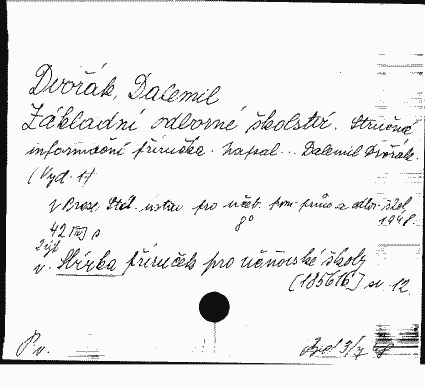 Dvořák, Dalemil
Základní odborné školství. Stručná
informační příručka. Napsal... Dalemil Dvořák.
(Vyd. 1)
V Brně. Stát. ústav pro učeb. pom. prům. a odbor. škol
8° 1948.
42 s
v. Sbírka příruček pro učňovské školy
[185616] sv. 12.
P v.